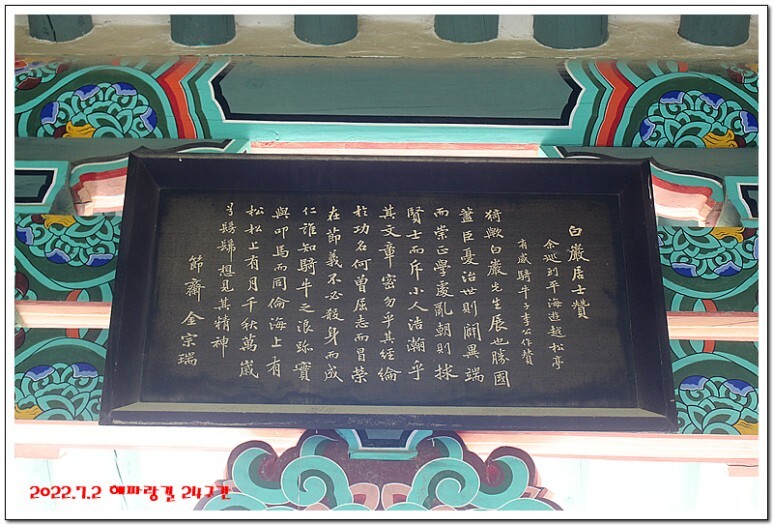 白巖居士讚
余巡到平海遊越松亭
有感騎牛子李公作贊
猗歟白巖先生展也勝國
藎臣憂治世則闢異端
而崇正學處亂朝則採
賢士而斥小人浩瀚乎
其文章密勿乎其經綸
於功名何曾屈志而冒榮
在節義不必殺身而成
仁誰知騎牛之浪跡實
與叩馬而同倫海上有
松松上有月千秋萬歲
兮髣髴想見其精神
節齋 金宗瑞
2022.7.2 해파랑길 24구간